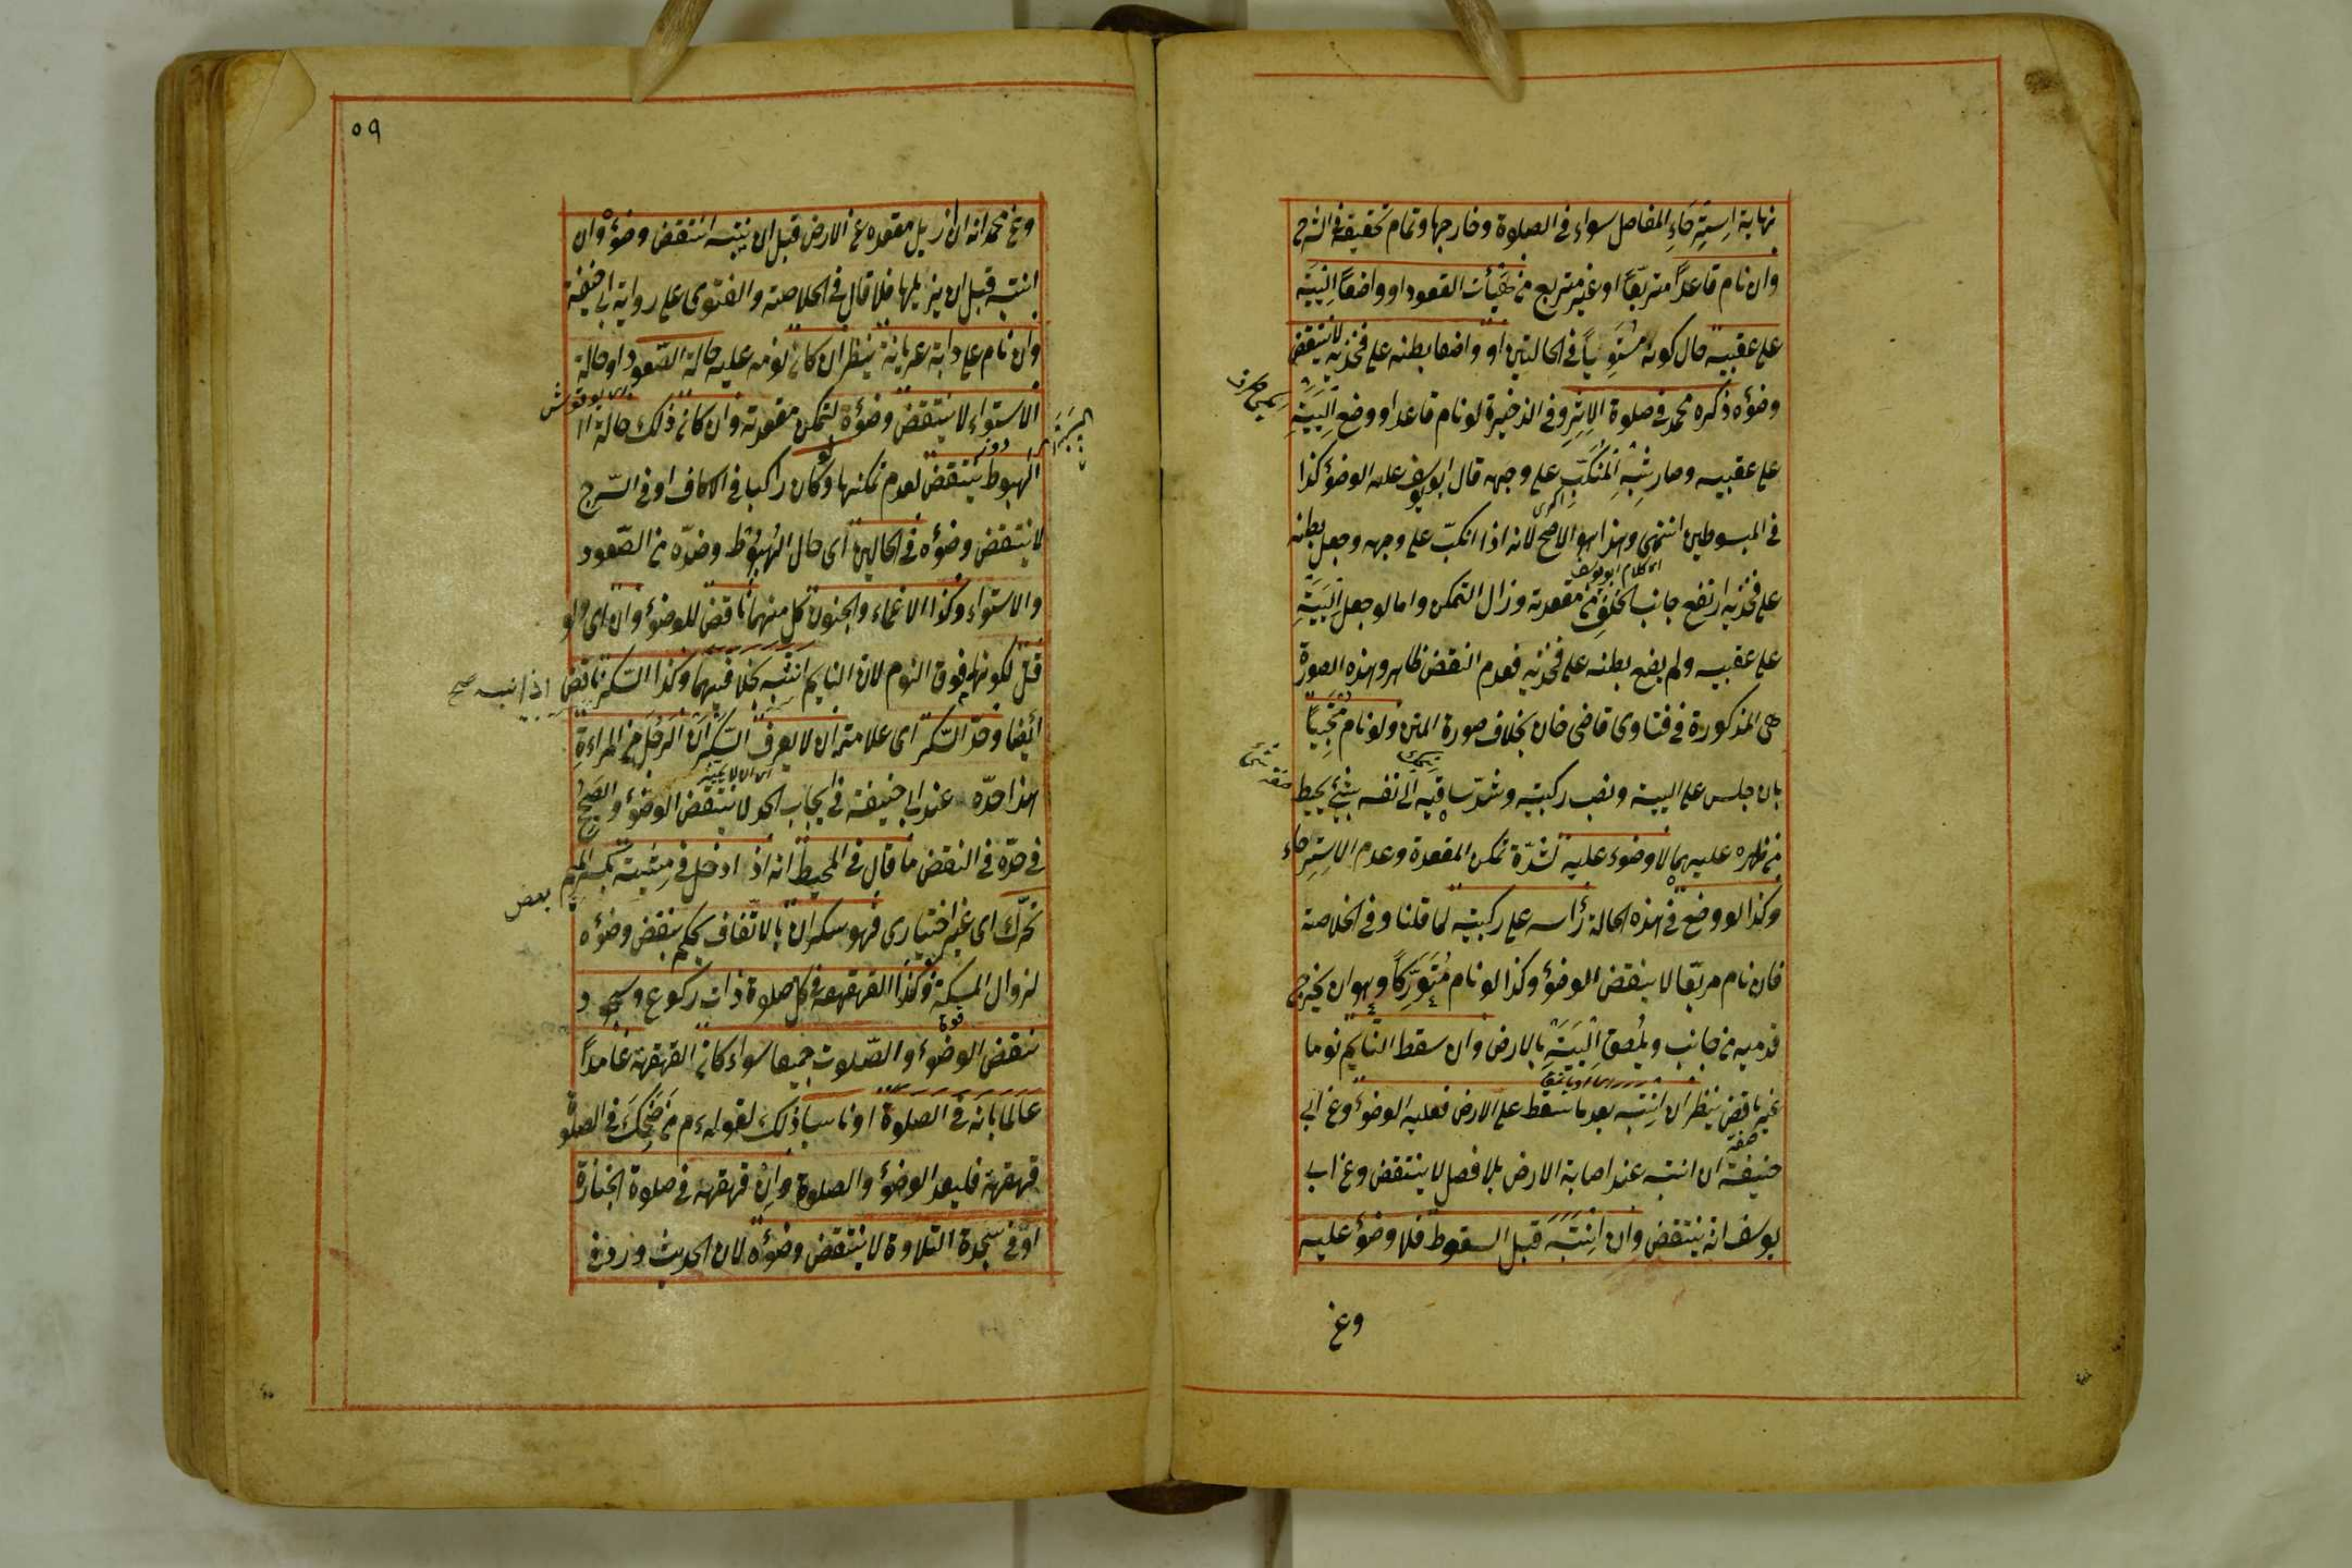 نهاية اِستِرخَاءِ المفاصل سواء في الصلوة وخارجها وتمام تحقيقه في الشرح
وان نام قاعداً متربّعاً او غير متربع من هَيْأت القعود او واضعاً اليَتَيْهِ
على عقبيه حال كونه مُسْتَوِياً في الحالتين او واضعا بطنه على فخذيه لا ينتقض
وضوؤه ذكره محمد في صلوة الاثر وفي الذخيرة لو نام قاعدا ووضع اَلْيَتَيْهِ
على عقبيه وصار شِبْهَ المُنْكَبِّ على وجهه قال ابو يوسف عليه الوضوء كذا
في المبسوطين انتهى وهذا هو الاصح لانه اذا انكبّ على وجهه وجعل بطنه
على فخذيه ارتفع جانب الخلف من مقعدته وزال التمكن واما لو جعل اَلْيَتَيْهِ
على عقبيه ولم يضع بطنه على فخذيه فعدم النقض ظاهر وهذه الصورة
هى المذكورة في فتاوى قاضى خان بخلاف صورة المتن ولو نام مُحْتَبِياً
بان جلس على اليتيه ونصب ركبتيه وشدّ ساقيه الى نفسه بشئ يحيط
من ظهره عليهما لا وضوء عليه لشدّة تمكن المقعدة وعدم الاِستِرخاء
وكذا لو وضع في هذه الحالة رأسه على ركبتيه لما قلنا وفي الخلاصة
فان نام مربّعا لا ينقض الوضوء وكذا لو نام مُتَوَرِّكاً وهو ان يخرج
قدميه من جانب ويلصق اَلْيَتَيْهِ بالارض وان سقط النّايم نوما
غير ناقض ينظر ان اِنتَبَه بعد ما سَقَط على الارض فعليه الوضوء وعن ابى
حنيفة ان انتبه عند اصابة الارض بلا فصل لا ينتقض وعن ابى
يوسف انه ينتقض وان اِنتَبَهَ قبل السقوط فلا وضوء عليه
وعن
٥٩
وعن محمد انه ان ازيل مقعده عن الارض قبل ان ينتبه انتقض وضوؤه وان
انتبه قبل ان يزيلها فلا قال في الخلاصة والفتوى على رواية ابى حنيفة
وان نام على دابة عريانة ينظر ان كان نومه عليه حالة الصّعود او حالة
الاستواء لا ينتقض وضوؤه لتمكن مقعدته وان كان ذلك حالة
الهبوط ينتقض لعدم تمكنها ولو كان راكبا في الاكاف او في السّرج
لا ينتقض وضوؤه في الحالين اى حال الهُبُوط وضدّه من الصّعود
والاستواء وكذا الاغماء والجنون كل منهما ناقض للوضوء وان اى ولو
قلّ لكونهما فوق النوم لان النايم انتبه بخلافهما وكذا السّكر ناقض
اذا نبه صح
ايضا وحدّ السّكر اى علامته ان لا يعرف السّكران الرجل من المراءة
هذا حدّه عند ابى حنيفة في ايجاب الحد لا ينتقض الوضوء والصحيح
في حدّه في النقض ما قال في المحيط انه اذا دخل في مشيته بكسر الميم
بعض
تحرّك اى غير اختيارى فهو سكران بالاتّفاق بحكم ينقض وضوؤه
لزوال المسكة وكذا القهقهة في كل صلوة ذات ركوع وسجود
ينقض الوضوء والصّلوة جميعا سواء كان القهقهة عَامداً
عالما بانه في الصلوة او ناسيا ذلك لقوله ءم من ضَحِكَ في الصلوة
قهقهة فليعد الوضوء والصلوة وان قهقهه في صلوة الجنازة
او في سجدة التلاوة لا ينتقض وضوؤه لان الحديث ورد في